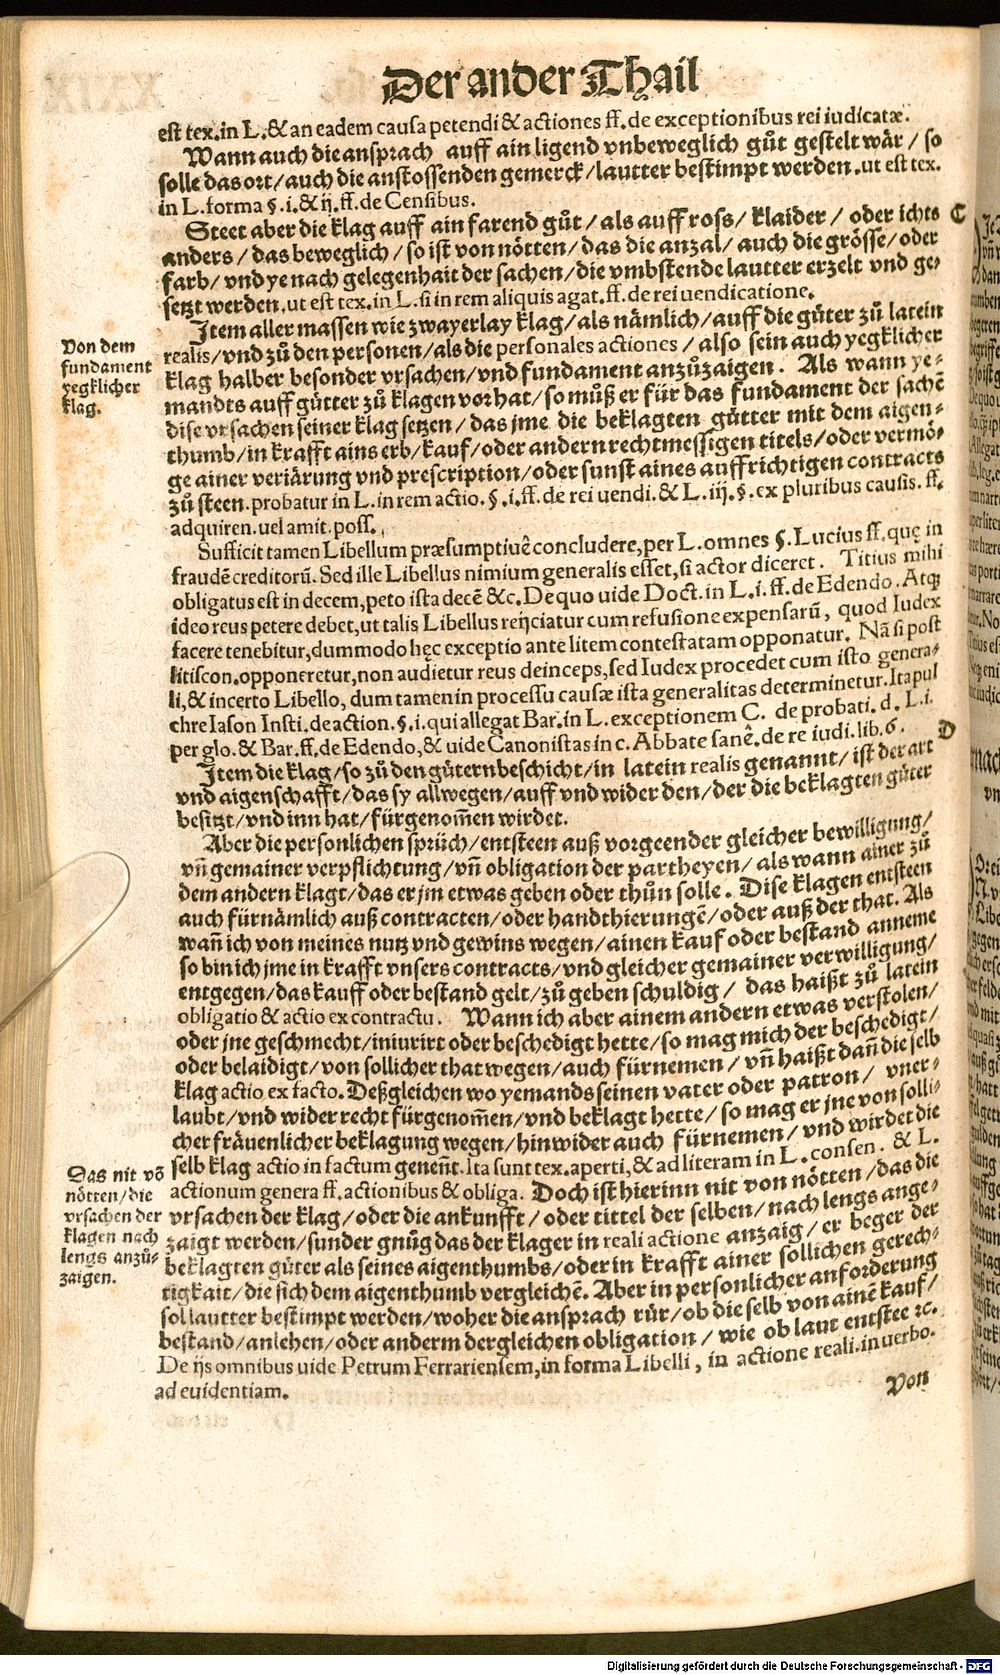 Der ander Thail
est tex. in L. & an eadem causa petendi & actiones ff. de exceptionibus rei iudicatæ.
Wann auch die ansprach auff ain ligend vnbeweglich gůt gestelt wär / so
solle das ort / auch die anstossenden gemerck / lautter bestimpt werden. ut est tex.
in L. forma §. i. & ij. ff. de Censibus.
Steet aber die klag auff ain farend gůt / als auff ross / klaider / oder ichts
C
anders / das beweglich / so ist von nötten / das die anzal / auch die grösse / oder
farb / vnd ye nach gelegenhait der sachen / die vmbstende lautter erzelt vnd ge-
setzt werden. ut est tex. in L. si in rem aliquis agat. ff. de rei uendicatione.
Item aller massen wie zwayerlay klag / als nämlich / auff die güter zů latein
realis / vnd zů den personen / als die personales actiones / also sein auch yegklicher
klag halber besonder vrsachen / vnd fundament anzůzaigen. Als wann ye-
mandts auff gütter zů klagen vorhat / so můß er für das fundament der sachē
dise vrsachen seiner klag setzen / das jme die beklagten gütter mit dem aigen-
thumb / in krafft ains erb / kauf / oder andern rechtmessigen titels / oder vermö-
ge ainer veriärung vnd prescription / oder sunst aines auffrichtigen contracts
zů steen. probatur in L. in rem actio. §. i. ff. de rei uendi. & L. iij. §. ex pluribus causis. ff.
adquiren. uel amit. poss.
Von dem
fundament
yegklicher
klag.
Sufficit tamen Libellum præsumptiuè concludere, per L. omnes §. Lucius ff. quę in
fraudē creditorū. Sed ille Libellus nimium generalis esset, si actor diceret. Titius mihi
obligatus est in decem, peto ista decē &c. De quo uide Doct. in L. i. ff. de Edendo. Atq;
ideo reus petere debet, ut talis Libellus reijciatur cum refusione expensarū, quod Iudex
facere tenebitur, dummodo hęc exceptio ante litem contestatam opponatur. Nā si post
litiscon. opponeretur, non audietur reus deinceps, sed Iudex procedet cum isto genera-
li, & incerto Libello, dum tamen in processu causæ ista generalitas determinetur. Ita pul
chre Iason Insti. de action. §. i. qui allegat Bar. in L. exceptionem C. de probati. d. L. i.
per glo. & Bar. ff. de Edendo, & uide Canonistas in c. Abbate sanè. de re iudi. lib. 6.
D
Item die klag / so zů den gütern beschicht / in latein realis genannt / ist der art
vnd aigenschafft / das sy allwegen / auff vnd wider den / der die beklagten güter
besitzt / vnd inn hat / fürgenom̄en wirdet.
Aber die personlichen sprüch / entsteen auß vorgeender gleicher bewilligung /
vn̄ gemainer verpflichtung / vn̄ obligation der partheyen / als wann ainer zů
dem andern klagt / das er jm etwas geben oder thůn solle. Dise klagen entsteen
auch fürnämlich auß contracten / oder handthierungē / oder auß der that. Als
wan̄ ich von meines nutz vnd gewins wegen / ainen kauf oder bestand anneme
so bin ich jme in krafft vnsers contracts / vnd gleicher gemainer verwilligung /
entgegen / das kauff oder bestand gelt / zů geben schuldig / das haißt zů latein
obligatio & actio ex contractu. Wann ich aber ainem andern etwas verstolen /
oder jne geschmecht / iniurirt oder beschedigt hette / so mag mich der beschedigt /
oder belaidigt / von sollicher that wegen / auch fürnemen / vn̄ haißt dan̄ die selb
klag actio ex facto. Deßgleichen wo yemands seinen vater oder patron / vner-
laubt / vnd wider recht fürgenom̄en / vnd beklagt hette / so mag er jne von solli-
cher fräuenlicher beklagung wegen / hinwider auch fürnemen / vnd wirdet die
selb klag actio in factum genen̄t. Ita sunt tex. aperti, & ad literam in L. consen. & L.
actionum genera ff. actionibus & obliga. Doch ist hierinn nit von nötten / das die
vrsachen der klag / oder die ankunfft / oder tittel der selben / nach lengs ange-
zaigt werden / sunder gnůg das der klager in reali actione anzaig / er beger der
beklagten güter als seines aigenthumbs / oder in krafft ainer sollichen gerech-
tigkait / die sich dem aigenthumb vergleichē. Aber in personlicher anforderung
sol lautter bestimpt werden / woher die ansprach rür / ob die selb von ainē kauf /
bestand / anlehen / oder anderm dergleichen obligation / wie ob laut entstee ꝛc.
De ijs omnibus uide Petrum Ferrariensem, in forma Libelli, in actione reali. in uerbo.
ad euidentiam.
Das nit vō
nötten / die
vrsachen der
klagen nach
lengs anzů-
zaigen.
Von
Digitalisierung gefördert durch die Deutsche Forschungsgemeinschaft - DFG